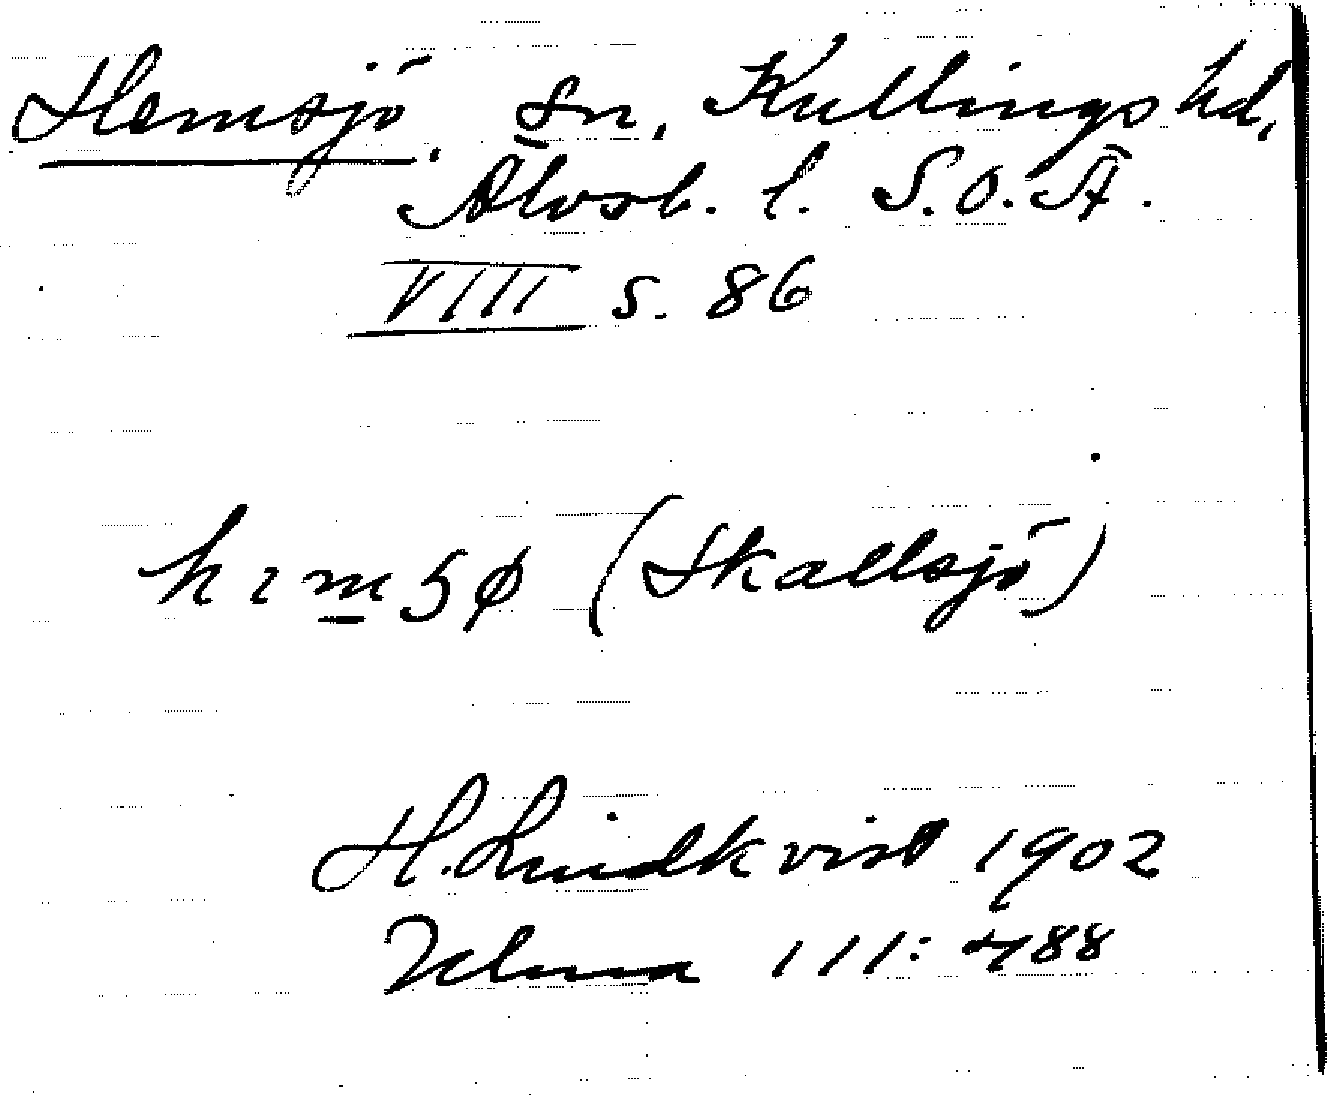 Hemsjö. sn. Kullings hd,
Älvsb. l. S.O.Ä.
VIII s. 86
hımʂø (Skallsjö)
H. Lindkvist 1902
Ulma 111:488